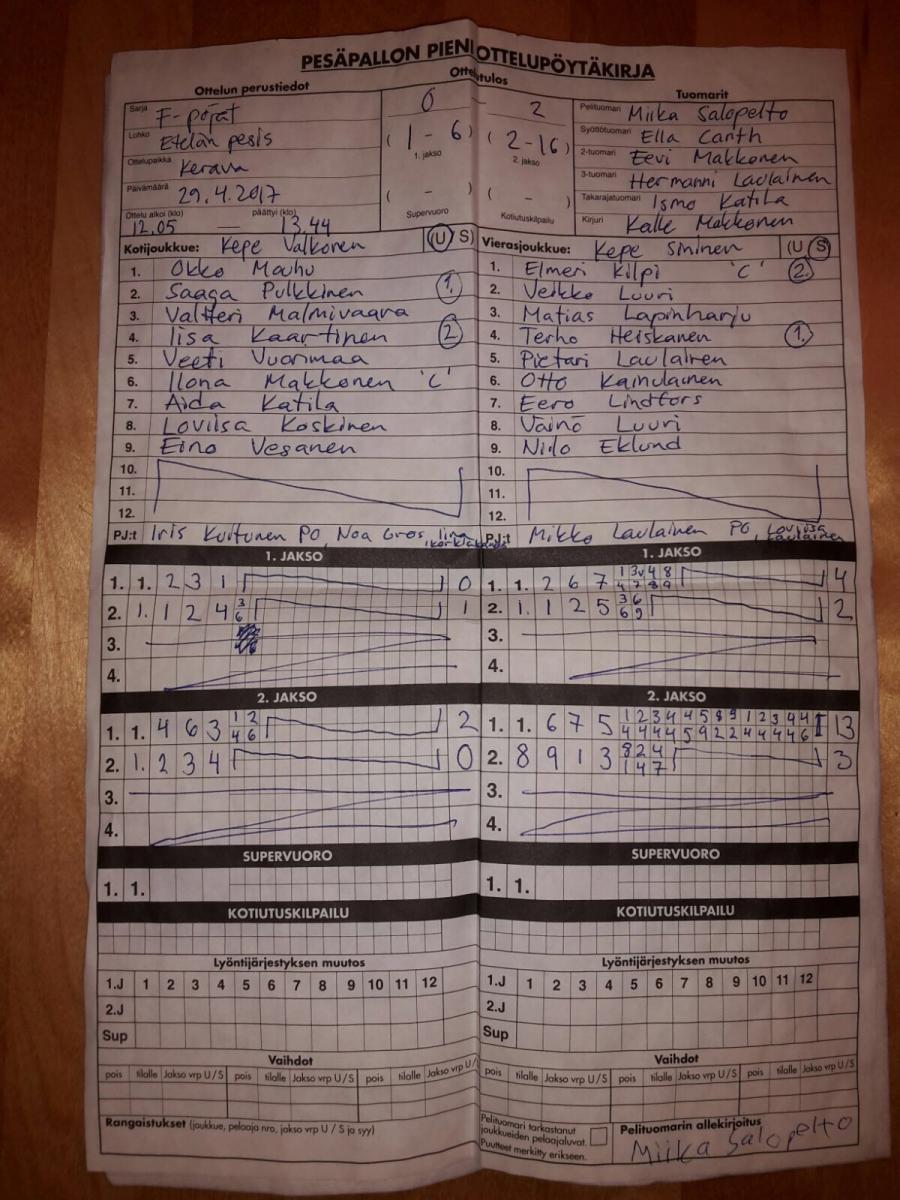 PESÄPALLON PIENI OTTELUPÖYTÄKIRJA
Ottelun perustiedot
Ottelutulos
Tuomarit
Sarja F-pojat
Lohko Etelän pesis
Ottelupaikka Kerava
Päivämäärä 29.4.2017
Ottelu alkoi (klo) päättyi (klo)
12.05 — 13.44
0 - 2
( 1 - 6 ) ( 2-16 )
1. jakso 2. jakso
( - ) ( - )
Supervuoro Kotiutuskilpailu
Pelituomari Miika Salopelto
Syöttötuomari Ella Canth
2-tuomari Eevi Makkonen
3-tuomari Hermanni Laulainen
Takarajatuomari Ismo Katila
Kirjuri Kalle Makkonen
Kotijoukkue: Kepe Valkonen (U S)
1. Okko Mauhu
2. Saaga Pulkkinen 1.
3. Valtteri Malmivaara
4. Iisa Kaartinen 2.
5. Veeti Vuorimaa
6. Ilona Makkonen 'C'
7. Aida Katila
8. Loviisa Koskinen
9. Eino Vesanen
10.
11.
12.
PJ:t Iris Kuitunen PO, Noa Gros, Iina
Vierasjoukkue: Kepe Sininen (U S)
1. Elmeri Kilpi 'C' 2.
2. Veikko Luuri
3. Matias Lapinharju
4. Terho Heiskanen 1.
5. Pietari Laulainen
6. Otto Kainulainen
7. Eero Lindfors
8. Väinö Luuri
9. Niilo Eklund
10.
11.
12.
PJ:t Mikko Laulainen PO, Loviisa Laulainen
1. JAKSO
1. 1. 2 3 1 0
2. 1. 1 2 4 3 6 1
3.
4.
1. JAKSO
1. 1. 2 6 7 4
2. 1. 1 2 5 3 6 6 9 2
3.
4.
2. JAKSO
1. 1. 4 6 3 1 2 4 6 2
2. 1. 2 3 4 0
3.
4.
2. JAKSO
1. 1. 6 7 5 1 2 3 4 4 5 8 9 1 2 3 4 4 13
4 4 4 4 5 9 2 2 4 4 4 4 6
2. 8 9 1 3 8 2 4 3
1 4 7
3.
4.
SUPERVUORO
1. 1.
SUPERVUORO
1. 1.
KOTIUTUSKILPAILU
KOTIUTUSKILPAILU
Lyöntijärjestyksen muutos
1.J 1 2 3 4 5 6 7 8 9 10 11 12
2.J
Sup
Lyöntijärjestyksen muutos
1.J 1 2 3 4 5 6 7 8 9 10 11 12
2.J
Sup
Vaihdot
pois tilalle Jakso vrp U/S pois tilalle Jakso vrp U/S pois tilalle Jakso vrp U/
Vaihdot
pois tilalle Jakso vrp U/S pois tilalle Jakso vrp U/S pois tilalle Jakso vrp U/S
Rangaistukset (joukkue, pelaaja nro, jakso vrp U / S ja syy)
Pelituomari tarkastanut
joukkueiden pelaajaluvat.
Puutteet merkitty erikseen.
Pelituomarin allekirjoitus
Miika Salopelto